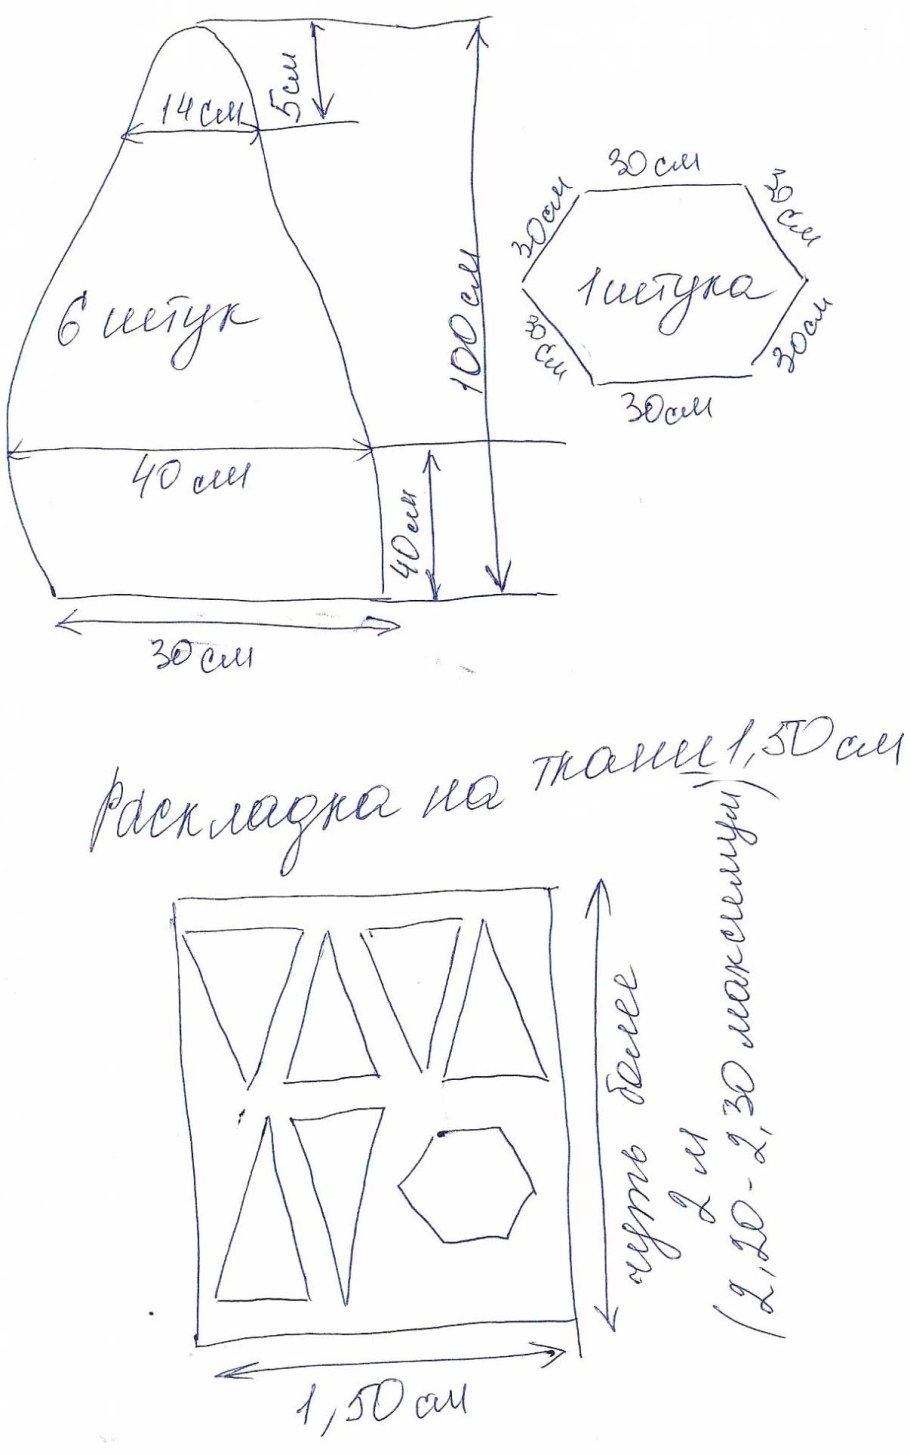 5см
14см
100см
6 штук
40см
40см
30см
30см
30см
30см
1 штука
30см
30см
30см
Раскладка на ткани 1,50см
чуть более
2м
(2,20-2,30 максимум)
1,50см